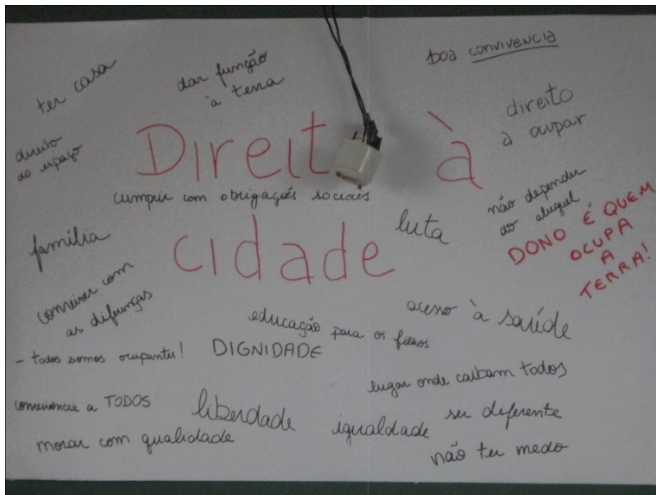 ter casa
dar função
à terra
boa convivencia
direito
a ocupar
direito
ao espaço
Direit à
cumprir com obrigações sociais
não depender
do aluguel
família
cidade
luta
DONO É QUEM
OCUPA
A
TERRA!
conviver com
as diferenças
educação para os filhos
acesso à saúde
- todos somos ocupantes!
DIGNIDADE
lugar onde caibam todos
convivência a TODOS
liberdade
igualdade
ser diferente
morar com qualidade
não ter medo